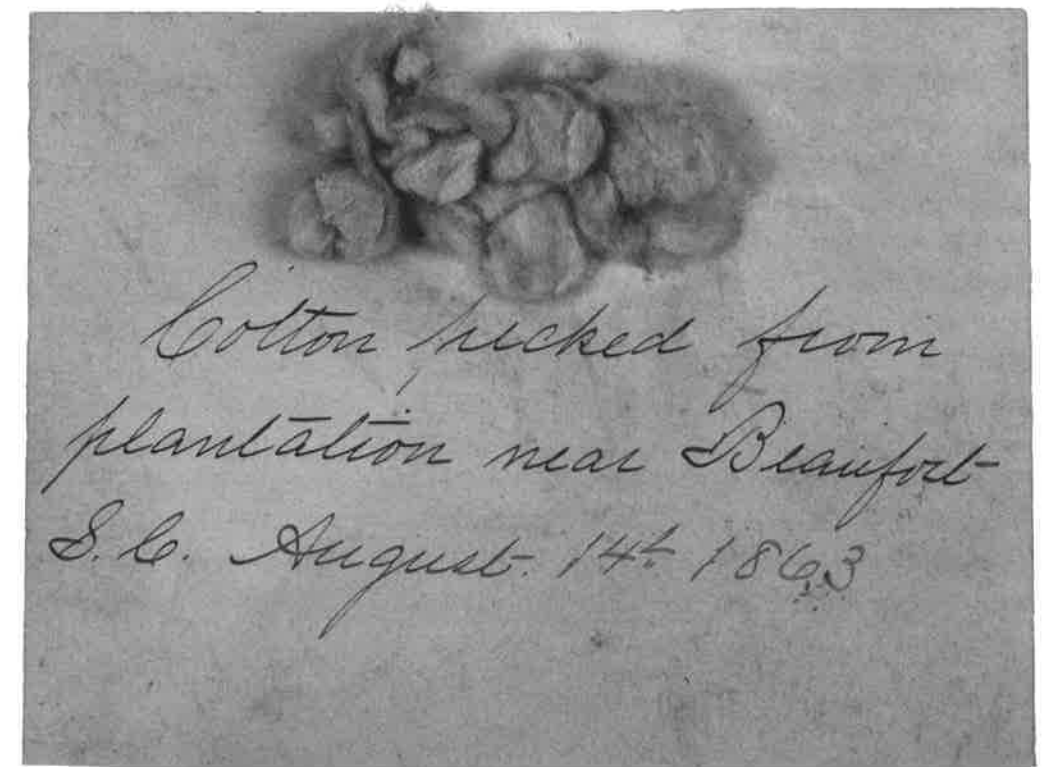 Cotton picked from
plantation near Beaufort
S.C. August. 14th 1863